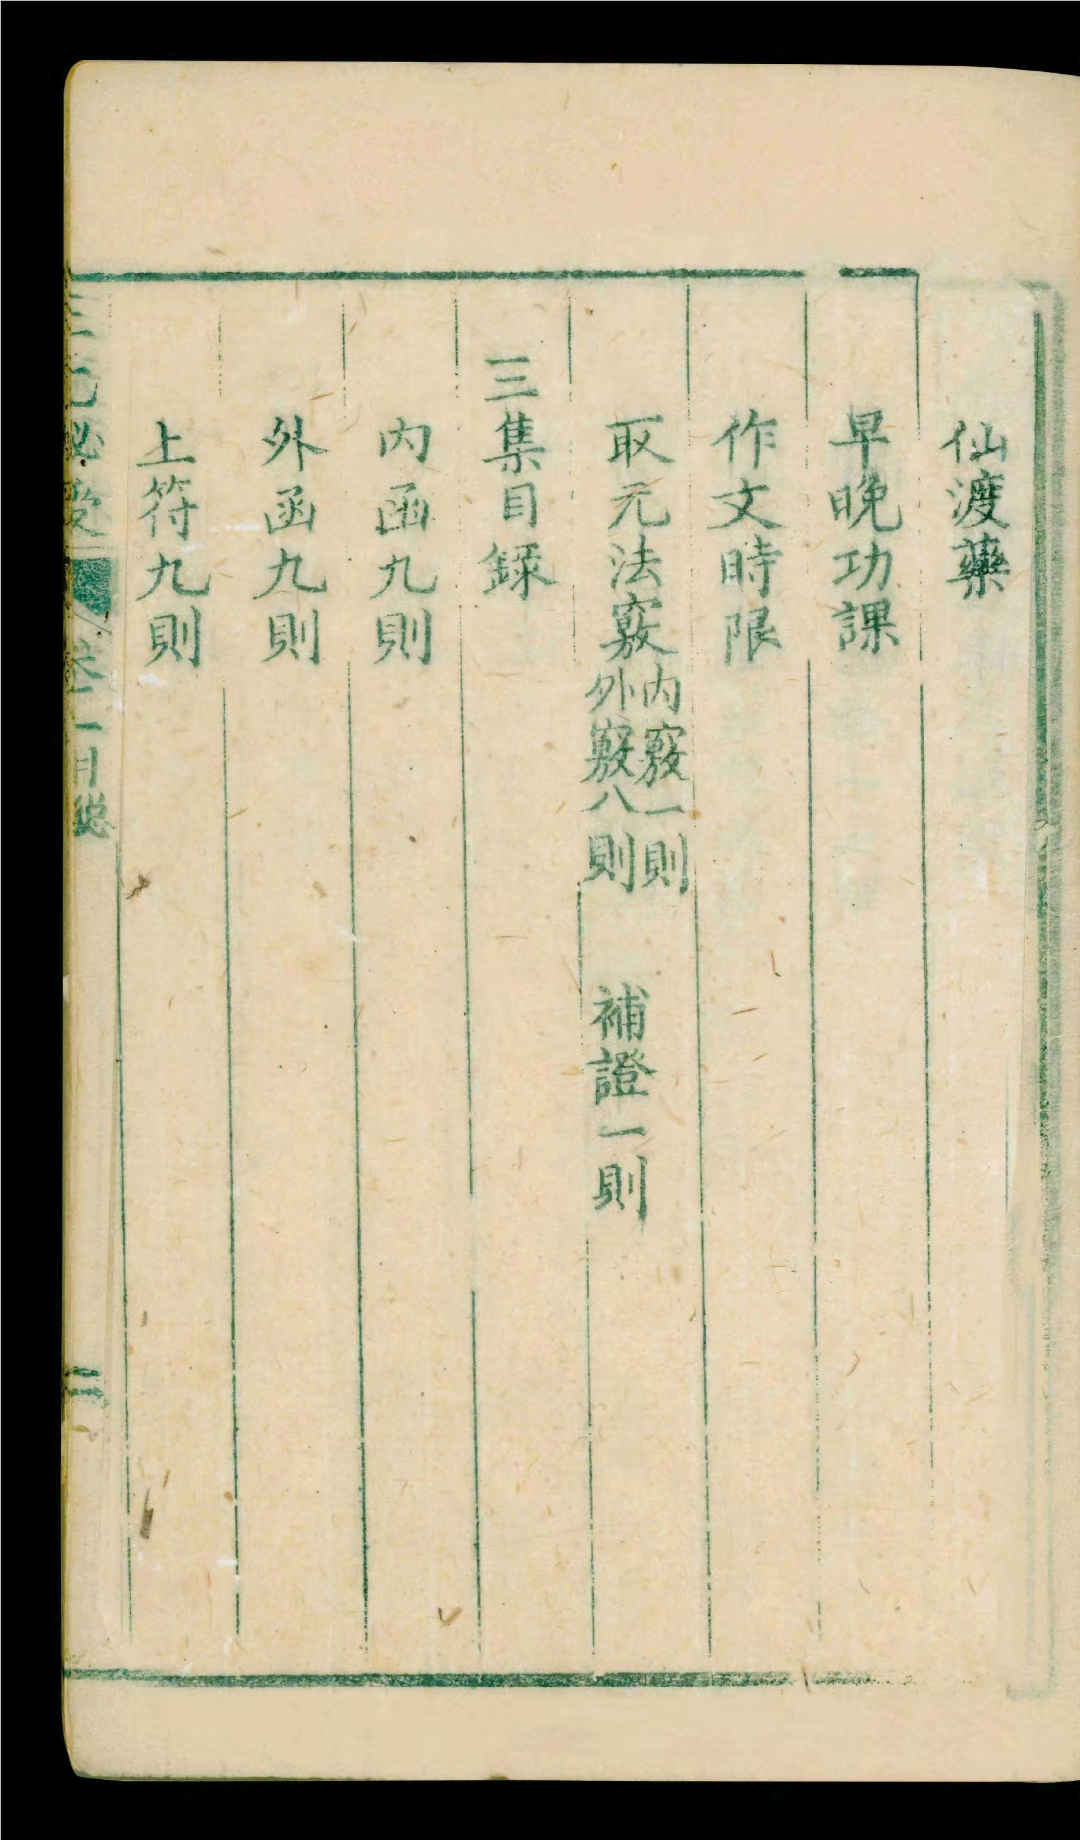 仙渡藥
早晚功課
作文時限
取元法竅內竅一則外竅八則 補證一則
三集目録
內函九則
外函九則
上符九則
三元秘受 卷二目録 三